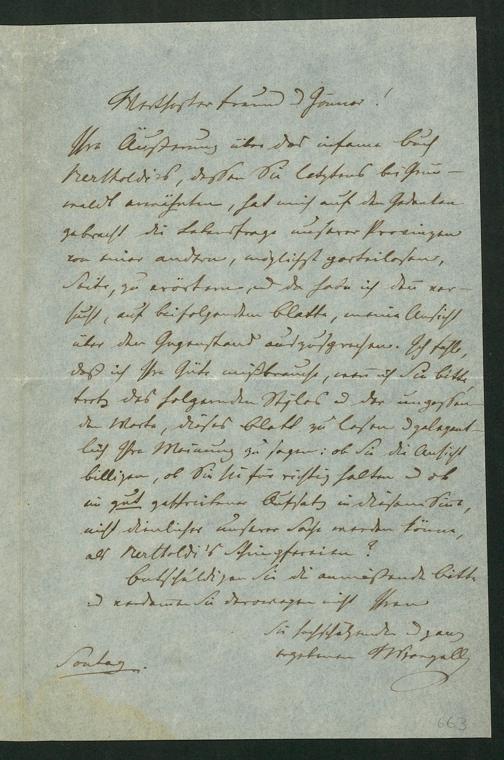 Werthester Freund u Gönner!
Ihre Äußerung über das infame Buch
Bertholdi's, dessen Sie letztens bei Grün-
waldt erwähnten, hat mich auf den Gedanken
gebracht die Lebensfrage unserer Provinzen
von einer andern, möglichst parteilosen,
Seite, zu erörtern, u da habe ich denn ver-
sucht, auf beifolgendem Blatte, meine Ansicht
über den Gegenstand auszusprechen. Ich fühle,
daß ich Ihre Güte mißbrauche, wenn ich Sie bitte
trotz des folgenden Styles u der ungessen-
den Worte, dieses Blatt zu lesen u gelegent-
lich Ihre Meinung zu sagen: ob Sie die Ansicht
billigen, ob Sie sie für richtig halten u ob
ein gut geschriebener Aufsatz in diesem Sinne,
nicht dienlicher unserer Sache werden könne,
als Bertholdi's Schimpfereien?
Entschuldigen Sie die anmaßende Bitte
u verdammen Sie deswegen nicht Ihren
Sie hochschätzenden u ganz
ergebenen Wrangell
Sontag.
663